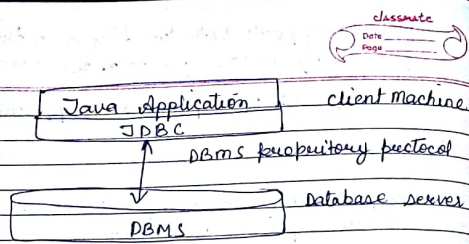 classmate
Date
Page
Java Application
client machine
JDBC
DBMS propritory protocol
Database server
DBMS